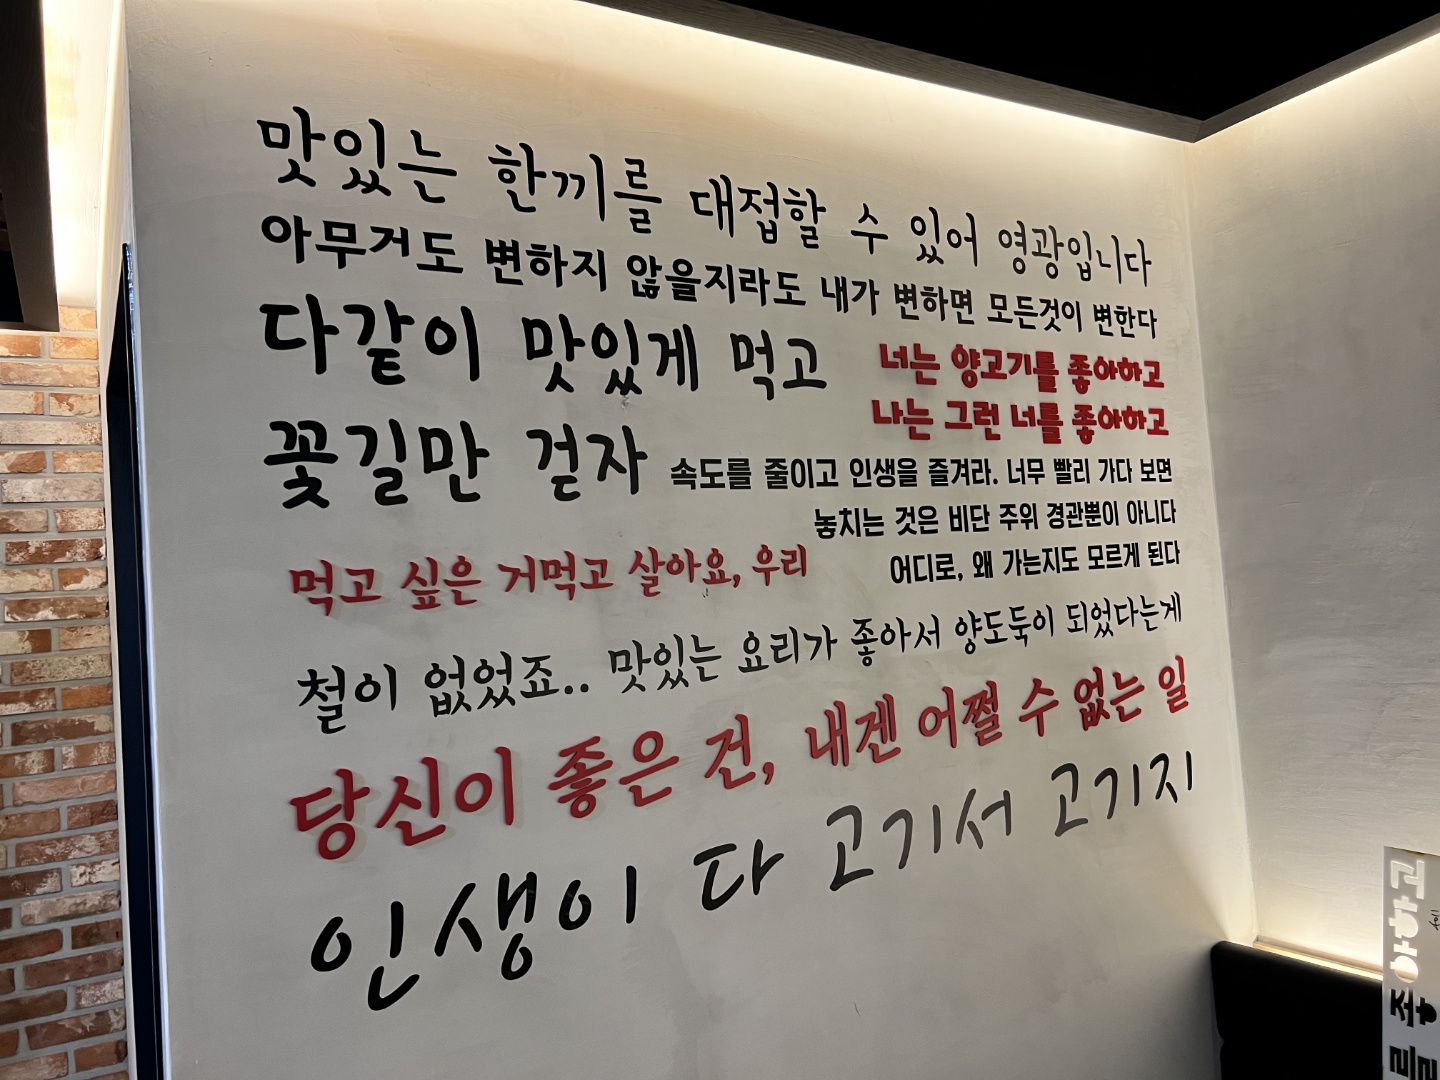 맛있는 한끼를 대접할 수 있어 영광입니다
아무거도 변하지 않을지라도 내가 변하면 모든것이 변한다
다같이 맛있게 먹고
꽃길만 걷자
너는 양고기를 좋아하고
나는 그런 너를 좋아하고
속도를 줄이고 인생을 즐겨라. 너무 빨리 가다 보면
놓치는 것은 비단 주위 경관뿐이 아니다
어디로, 왜 가는지도 모르게 된다
먹고 싶은 거먹고 살아요, 우리
철이 없었죠.. 맛있는 요리가 좋아서 양도둑이 되었다는게
당신이 좋은 건, 내겐 어쩔 수 없는 일
인생이 다 고기서 고기지
좋아하고